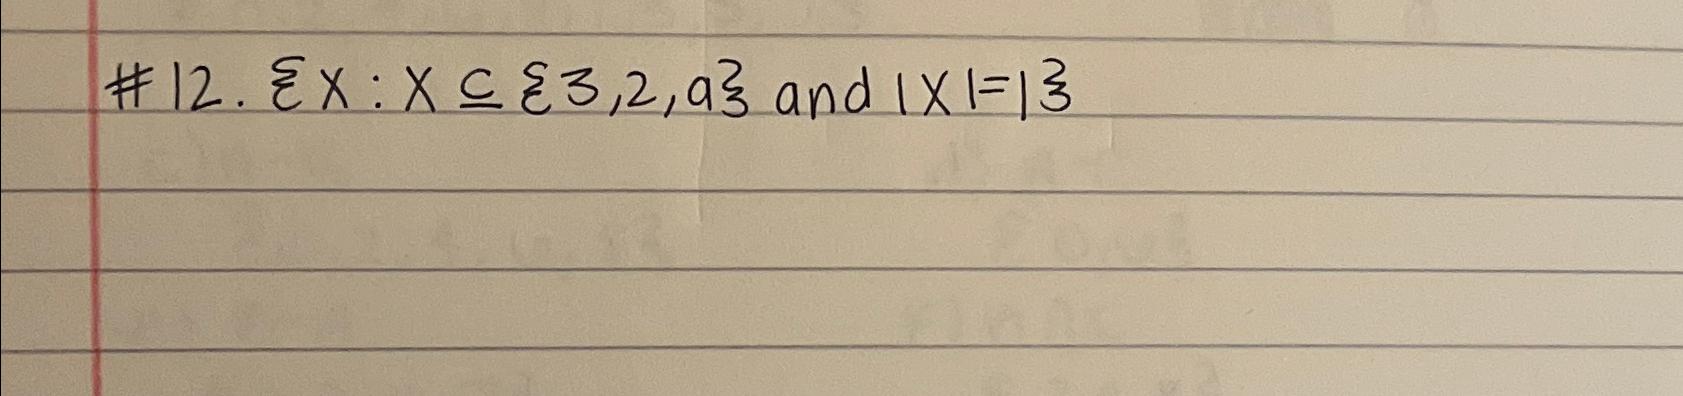 #12. {X : X ⊆ {3,2,a} and |X|=1}